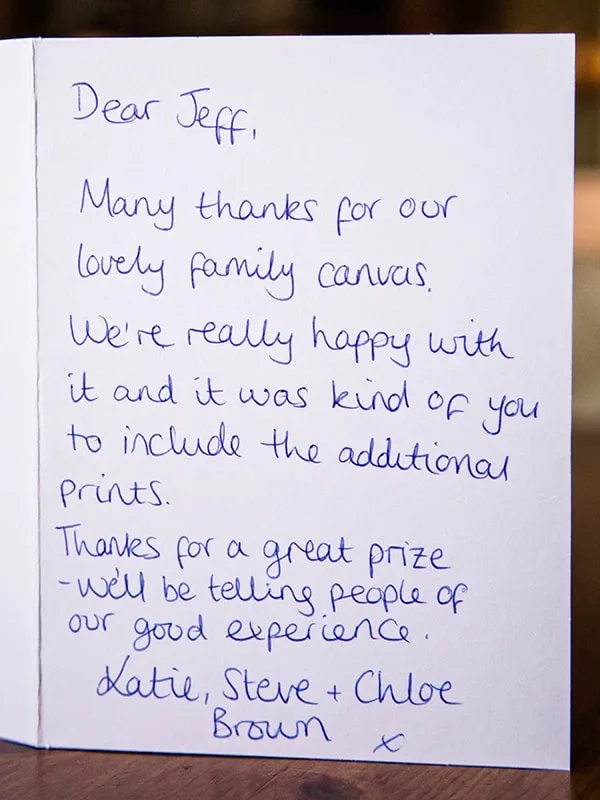 Dear Jeff,
Many thanks for our
lovely family canvas.
We're really happy with
it and it was kind of you
to include the additional
prints.
Thanks for a great prize
- we'll be telling people of
our good experience.
Katie, Steve + Chloe
Brown x